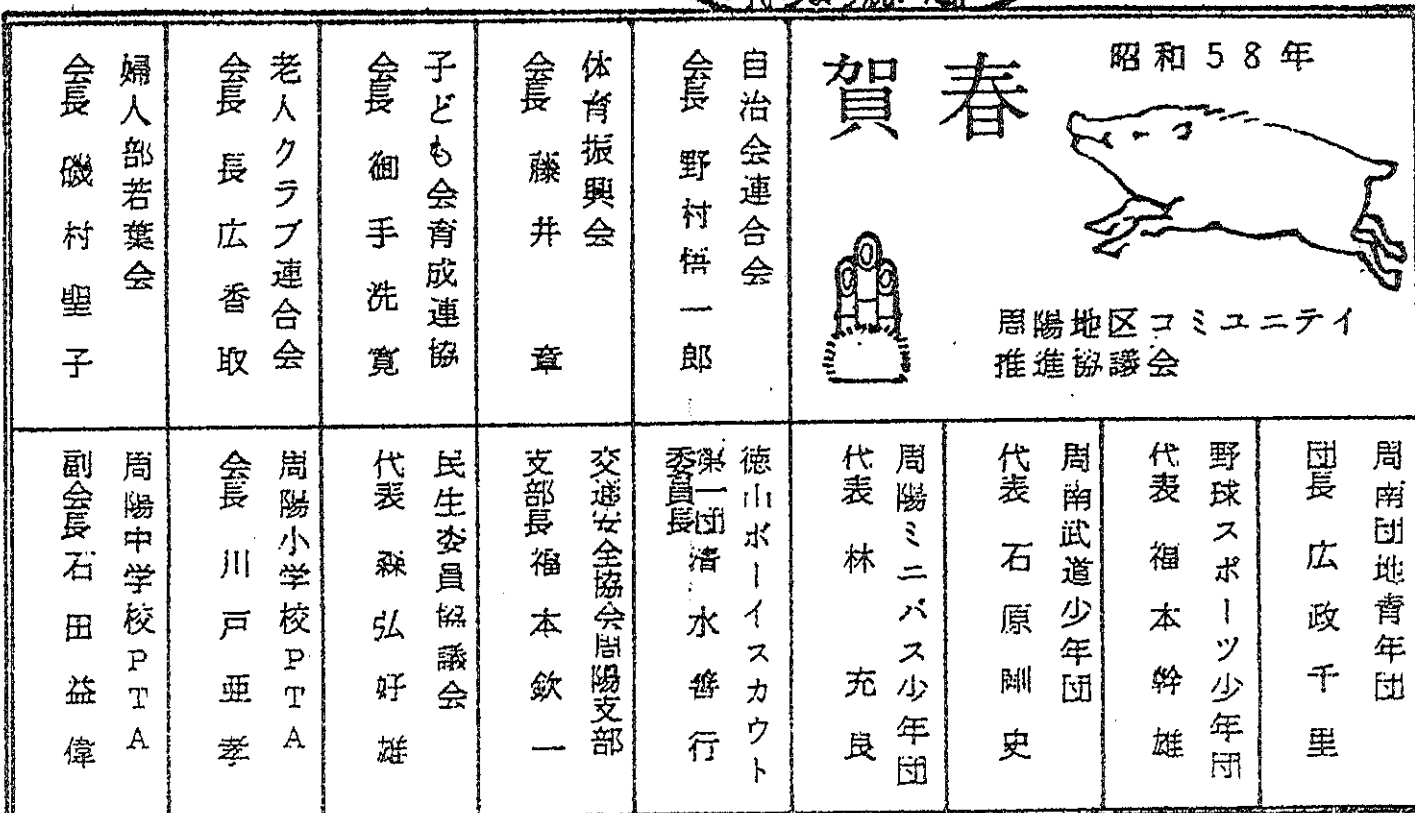 昭和58年
賀春
周陽地区コミユニテイ
推進協議会
自治会連合会
会長 野村悟一郎
体育振興会
会長 藤井 章
子ども会育成連協
会長 御手洗寛
老人クラブ連合会
会長 長広香取
婦人部若葉会
会長 磯村聖子
周南団地青年団
団長 広政千里
野球スポーツ少年団
代表 福本幹雄
周南武道少年団
代表 石原剛史
周陽ミニバス少年団
代表 林 充良
徳山ボーイスカウト
第一団
委員長 清水善行
交通安全協会周陽支部
支部長 福本欽一
民生委員協議会
代表 森弘好雄
周陽小学校PTA
会長 川戸亜孝
周陽中学校PTA
副会長 石田益偉